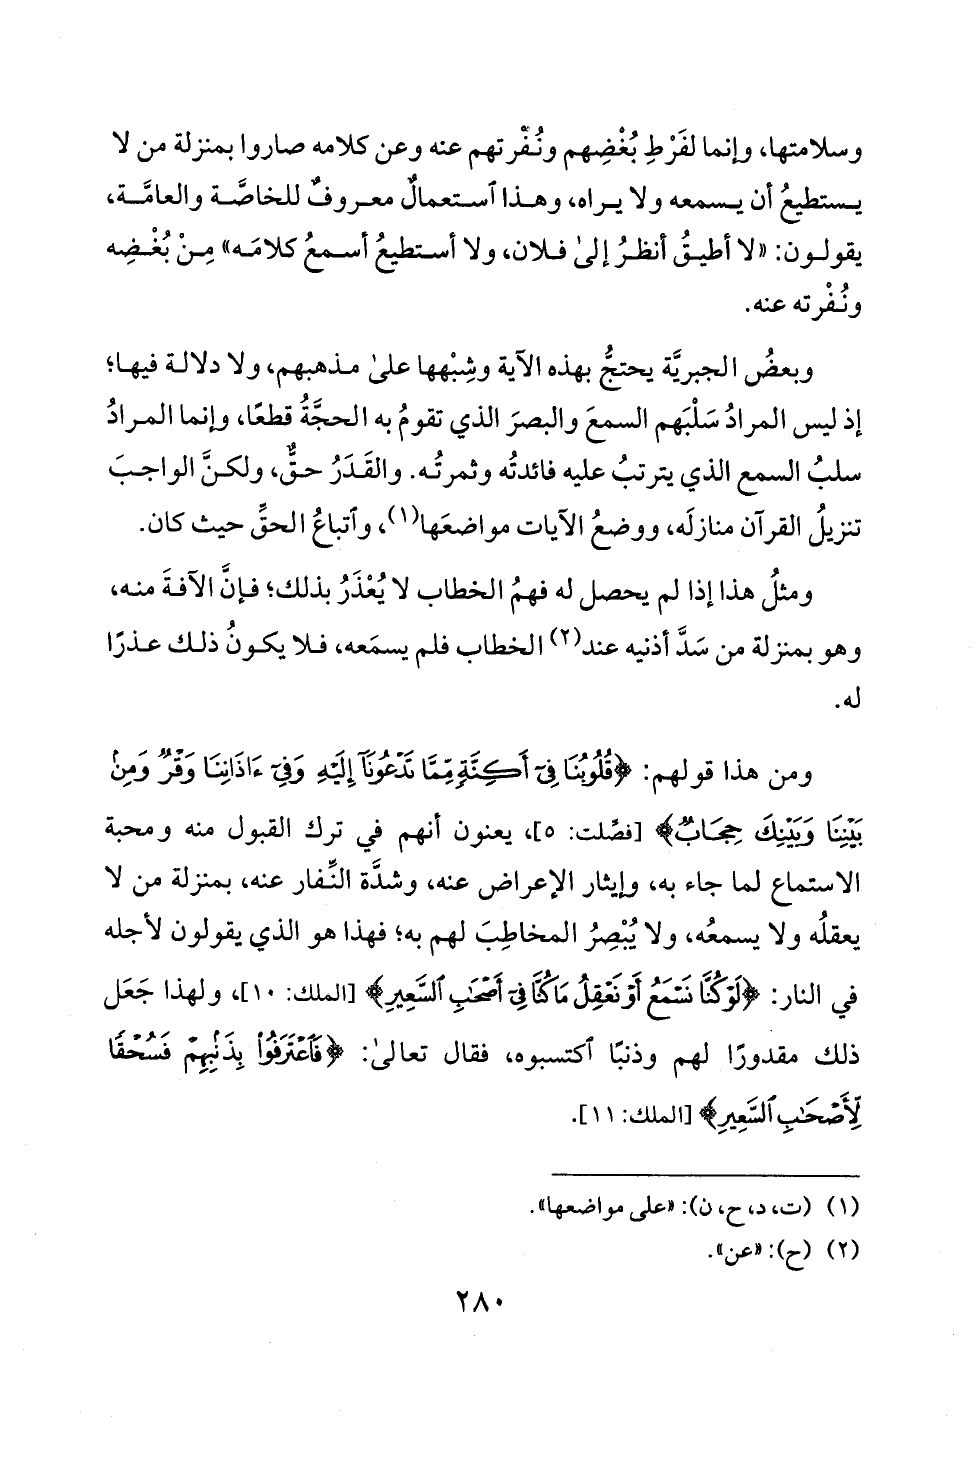 وسلامتها، وإنما لفَرْطِ بُغْضِهم ونُفْرتهم عنه وعن كلامه صاروا بمنزلة من لا
يستطيعُ أن يسمعه ولا يراه، وهذا ٱستعمالٌ معروفٌ للخاصَّة والعامَّة،
يقولون: «لا أطيقُ أنظرُ إلىٰ فلان، ولا أستطيعُ أسمعُ كلامَه» مِنْ بُغْضِه
ونُفْرته عنه.
وبعضُ الجبريَّة يحتجُّ بهذه الآية وشِبْهها علىٰ مذهبهم، ولا دلالة فيها؛
إذ ليس المرادُ سَلْبَهم السمعَ والبصرَ الذي تقومُ به الحجَّةُ قطعًا، وإنما المرادُ
سلبُ السمع الذي يترتبُ عليه فائدتُه وثمرتُه. والقَدَرُ حقٌّ، ولكنَّ الواجبَ
تنزيلُ القرآن منازلَه، ووضعُ الآيات مواضعَها(١)، وٱتباعُ الحقِّ حيث كان.
ومثلُ هذا إذا لم يحصل له فهمُ الخطاب لا يُعْذَرُ بذلك؛ فإنَّ الآفةَ منه،
وهو بمنزلة من سَدَّ أذنيه عند(٢) الخطاب فلم يسمَعه، فلا يكونُ ذلك عذرًا
له.
ومن هذا قولهم: ﴿قُلُوبُنَا فِىٓ أَكِنَّةٍ مِّمَّا تَدْعُونَآ إِلَيْهِ وَفِىٓ ءَاذَانِنَا وَقْرٌ وَمِنۢ
بَيْنِنَا وَبَيْنِكَ حِجَابٌ﴾ [فصِّلت: ٥]، يعنون أنهم في ترك القبول منه ومحبة
الاستماع لما جاء به، وإيثار الإعراض عنه، وشدَّة النِّفار عنه، بمنزلة من لا
يعقلُه ولا يسمعُه، ولا يُبْصِرُ المخاطِبَ لهم به؛ فهذا هو الذي يقولون لأجله
في النار: ﴿لَوْ كُنَّا نَسْمَعُ أَوْ نَعْقِلُ مَا كُنَّا فِىٓ أَصْحَٰبِ ٱلسَّعِيرِ﴾ [الملك: ١٠]، ولهذا جَعَل
ذلك مقدورًا لهم وذنبًا ٱكتسبوه، فقال تعالىٰ: ﴿فَٱعْتَرَفُوا۟ بِذَنۢبِهِمْ فَسُحْقًا
لِّأَصْحَٰبِ ٱلسَّعِيرِ﴾ [الملك: ١١].
(١) (ت، د، ح، ن): «على مواضعها».
(٢) (ح): «عن».
٢٨٠